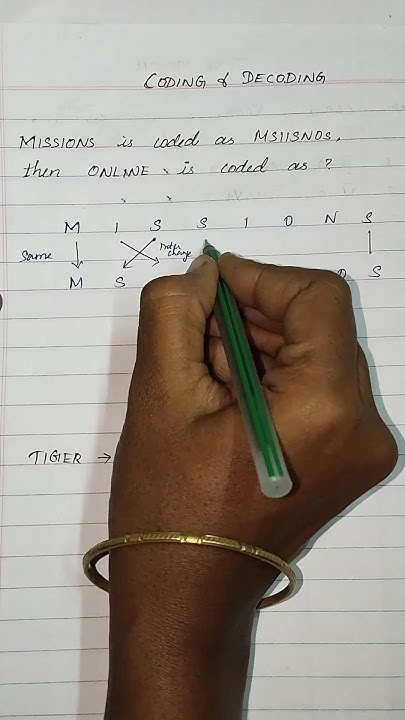 CODING & DECODING
MISSIONS is coded as MSIISNOS,
then ONLINE is coded as ?
M I S S I O N S
Same
inter change
M S O S
TIGER →